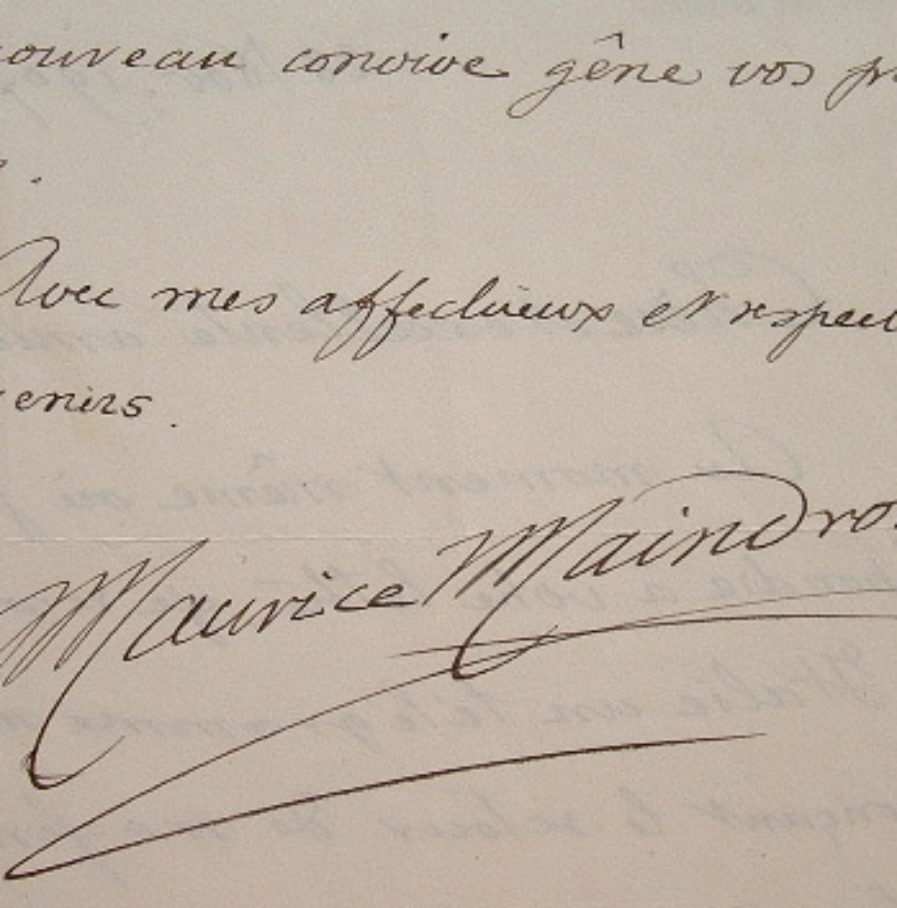 ouveau convive gêne vos pr
.
Avec mes affectueux et respect
enirs.
Maurice Maindro